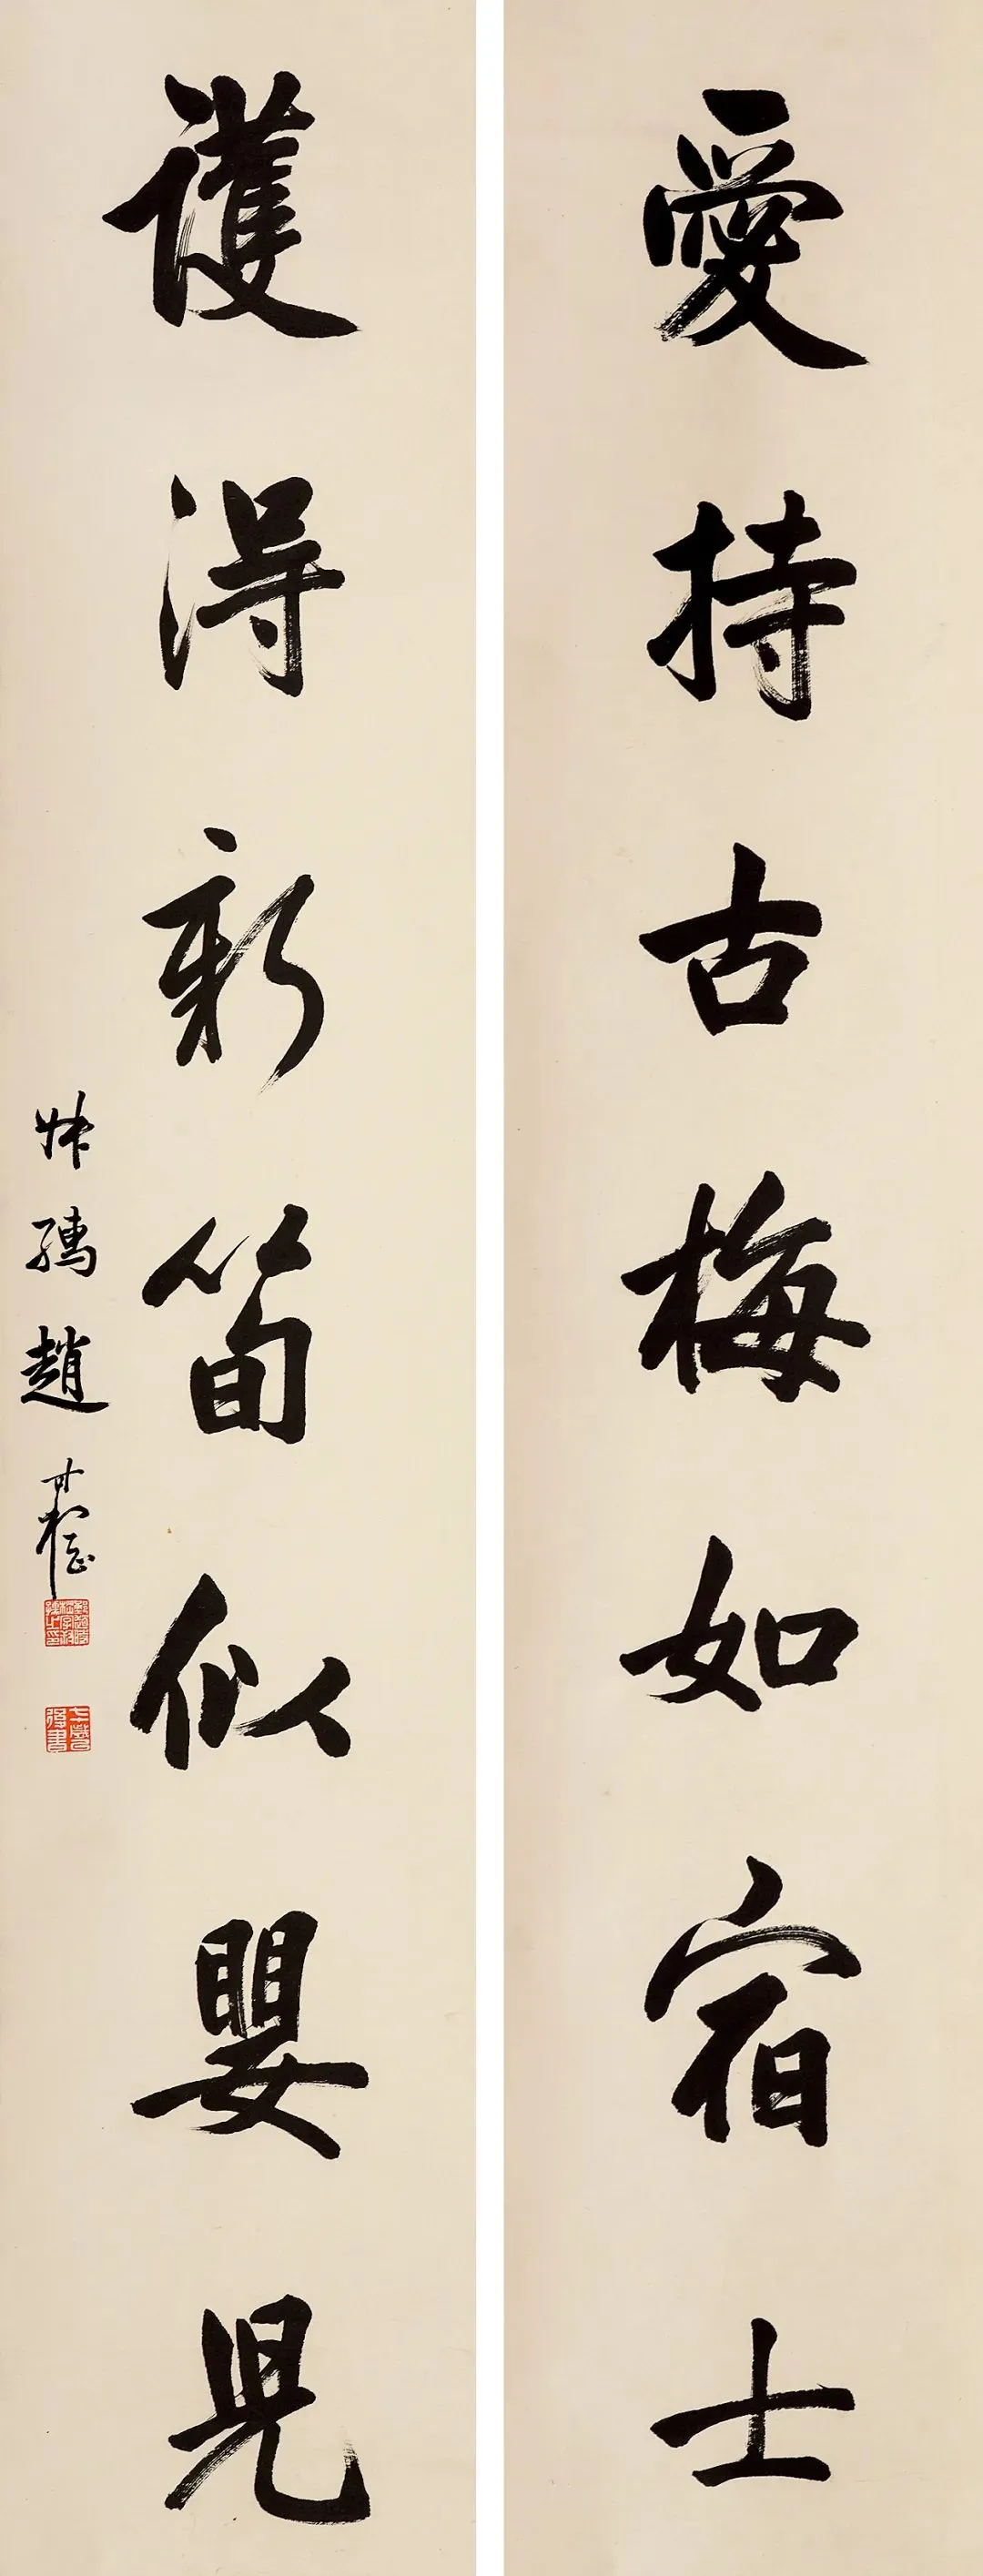 愛持古梅如宿士
護得新筍似嬰兒
叔孺趙